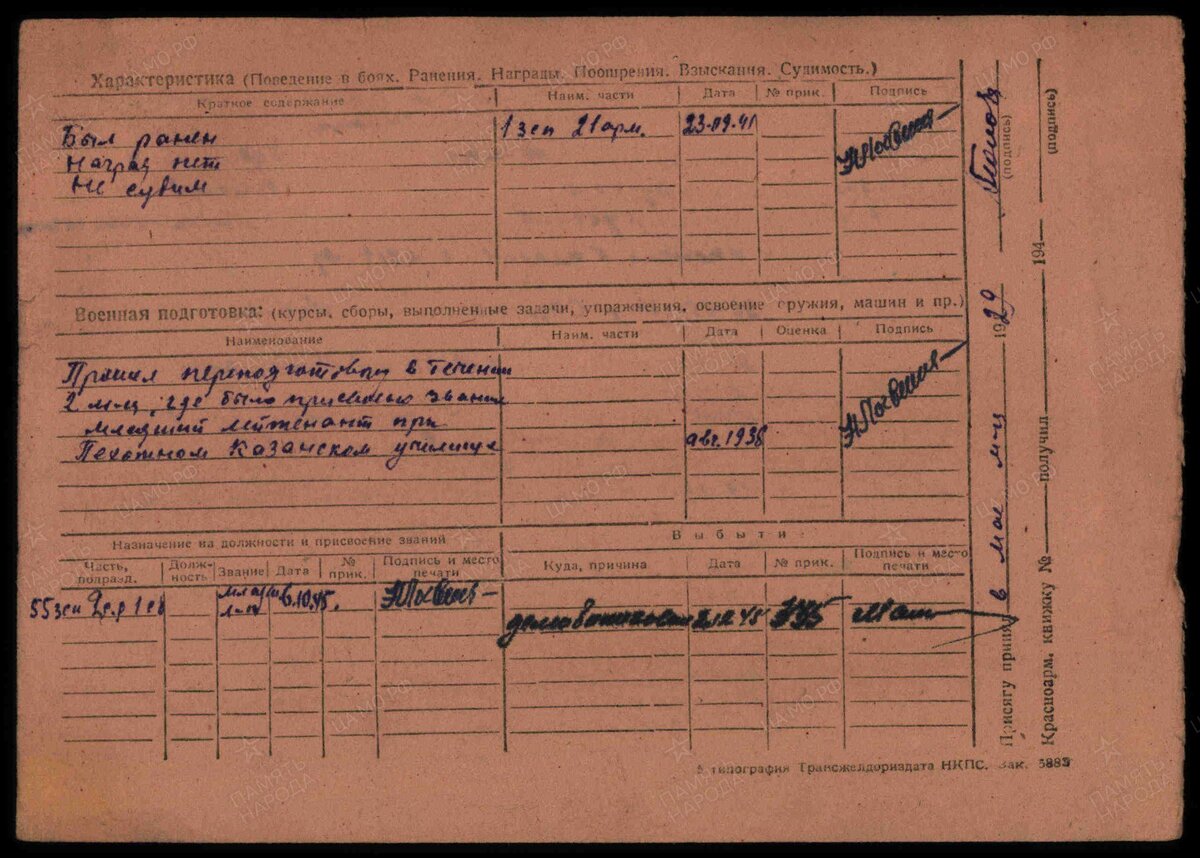 Характеристика (Поведение в боях. Ранения. Награды. Поощрения. Взыскания. Судимость.)
Краткое содержание Наим. части Дата № прик. Подпись
Был ранен 1 зсп 21 арм. 23.09.41
Наград нет
Не судим
Военная подготовка: (курсы, сборы, выполненные задачи, упражнения, освоение оружия, машин и пр.)
Наименование Наим. части Дата Оценка Подпись
Прошел переподготовку в течении
2 м-ц, где было присвоено звание
младший лейтенант при
Пехотном Казанском училище авг. 1938
Назначение на должности и присвоение званий
Выбытие
Часть, подразд. Долж-ность Звание Дата № прик. Подпись и место печати Куда, причина Дата № прик. Подпись и место печати
55 зсп
Присягу принял в мае м-ц 1929 (подпись)
Красноарм. книжку № получил 194 (подпись)
типография Трансжелдориздата НКПС. Зак.
ПАМЯТЬ НАРОДА
ЦАМО.РФ